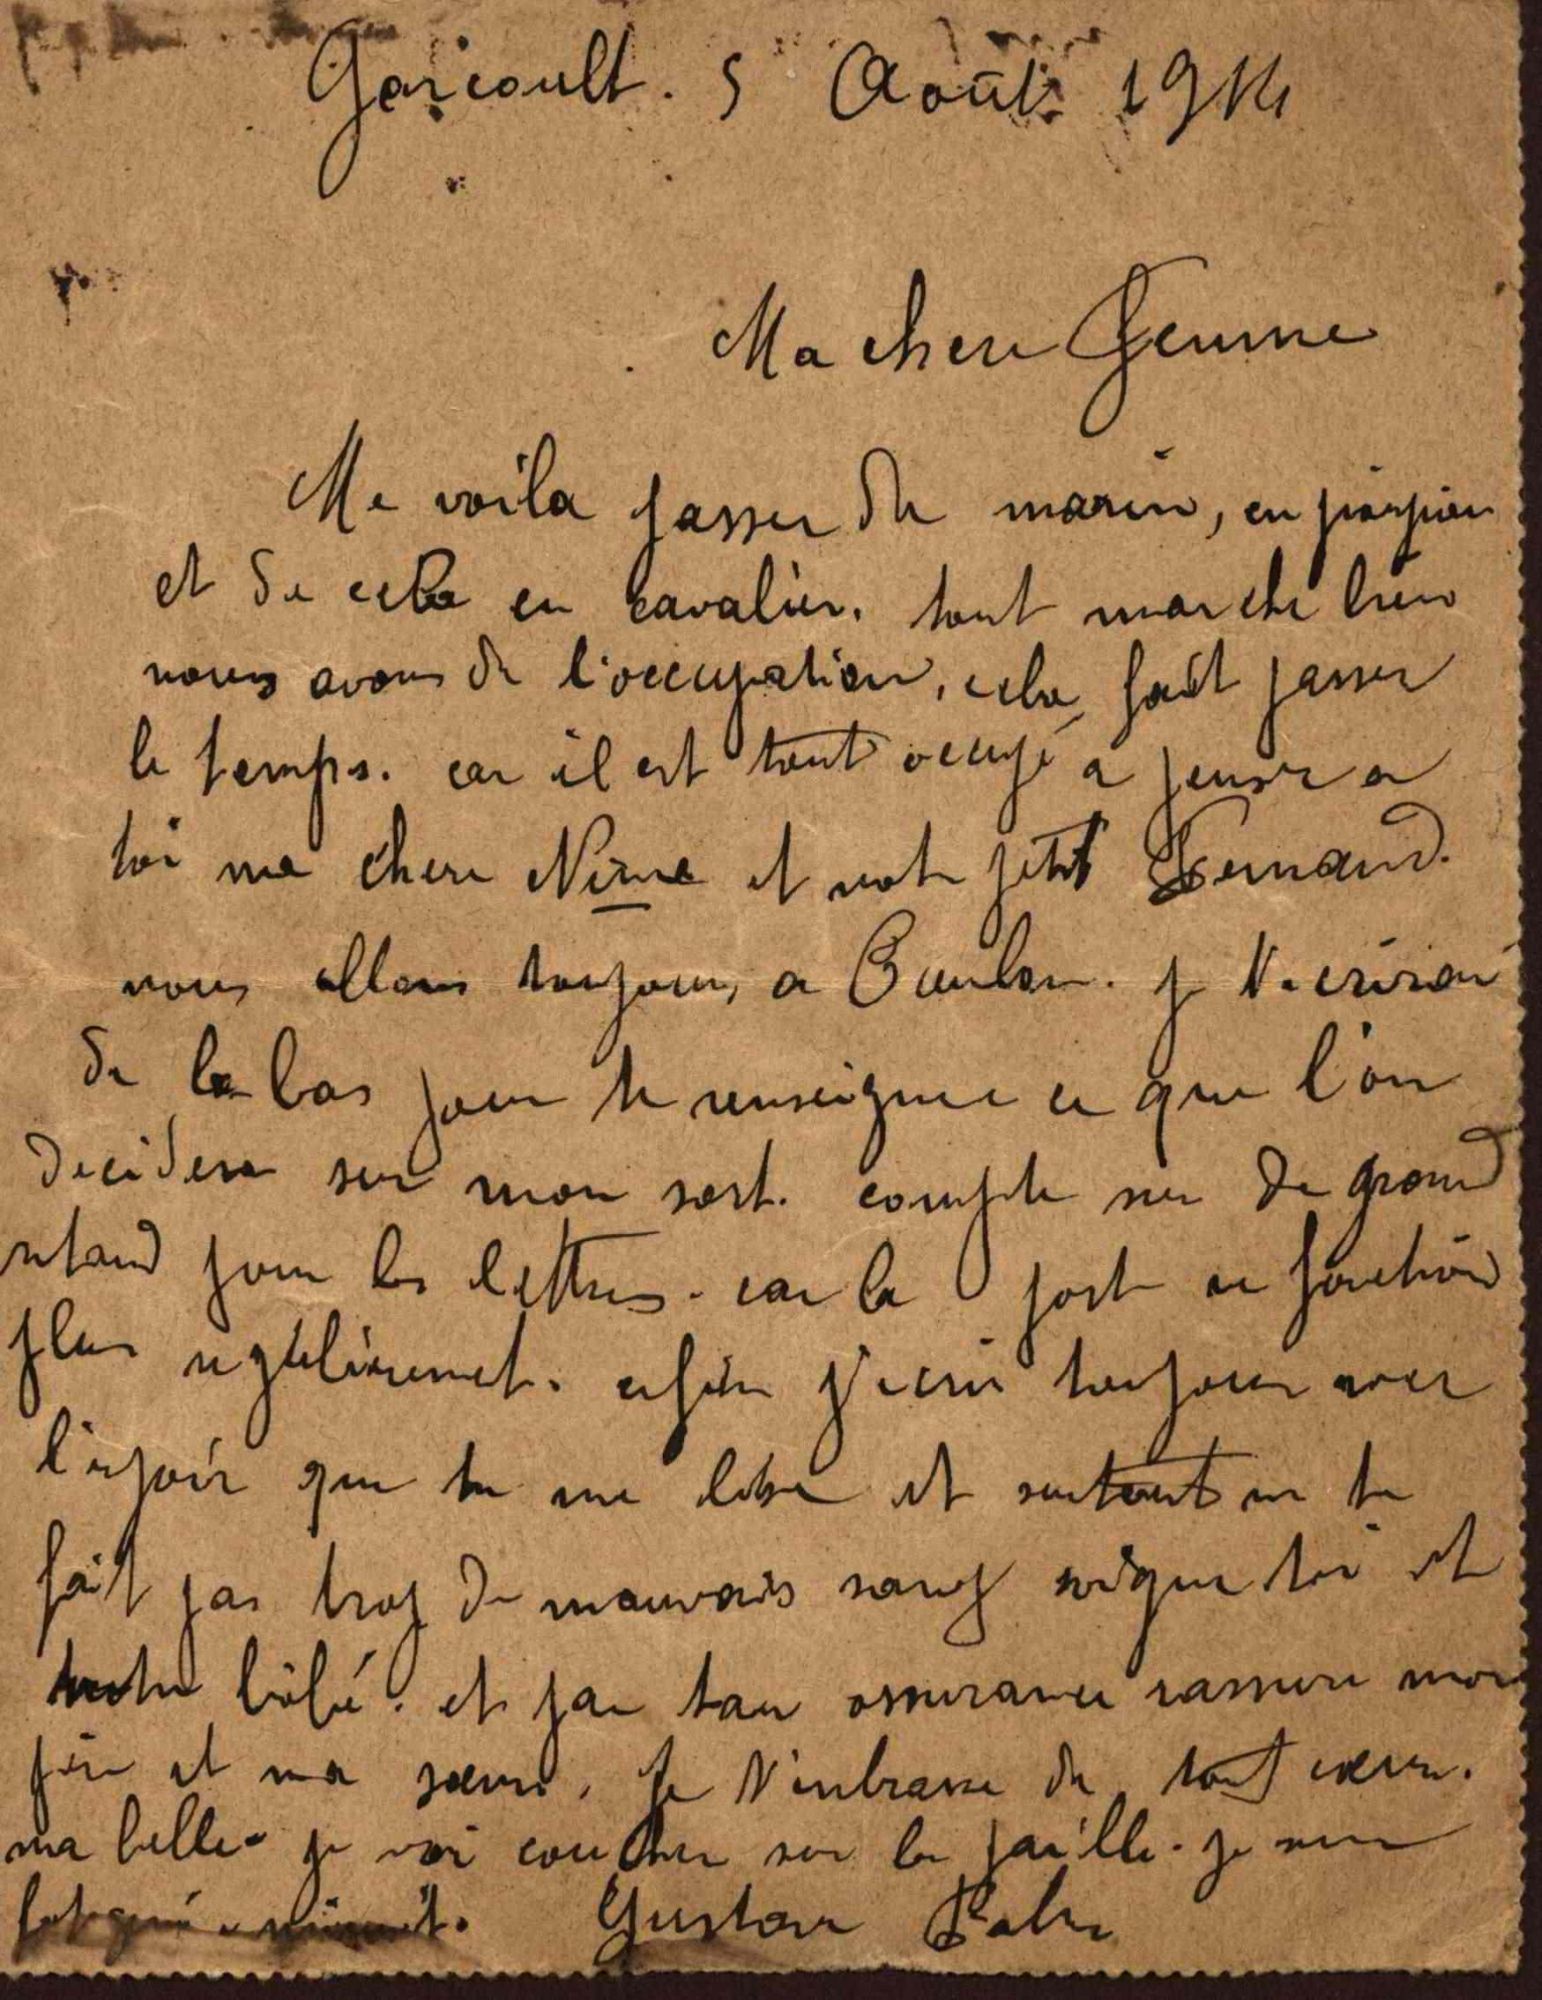 Garcoult. 5 Août 1914
Ma chere Femme
Me voila passer de marin, en pioupiou
et de cela en cavalier. tout marche bien
nous avons de l'occupation, cela fait passer
le temps. car il est tout occupé a penser a
toi ma chere Nine et notre petit Fernand.
nous allons toujours a Toulon. je t'ecrirai
de la bas pour te renseigner ce que l'on
decidera sur mon sort. compte sur de grand
retard pour les lettres. car la poste ne fonction
plus regulierement. enfin j'ecris toujours avec
l'espoir que tu me lise et surtout ne te
fait pas trop de mauvais sang soigne toi et
notre bébé. et par ton assurance rassure mon
père et ma soeur. Je t'embrasse de tout coeur.
ma belle. je vai coucher sur la paille. je suis
fatigué Gustave Fabre